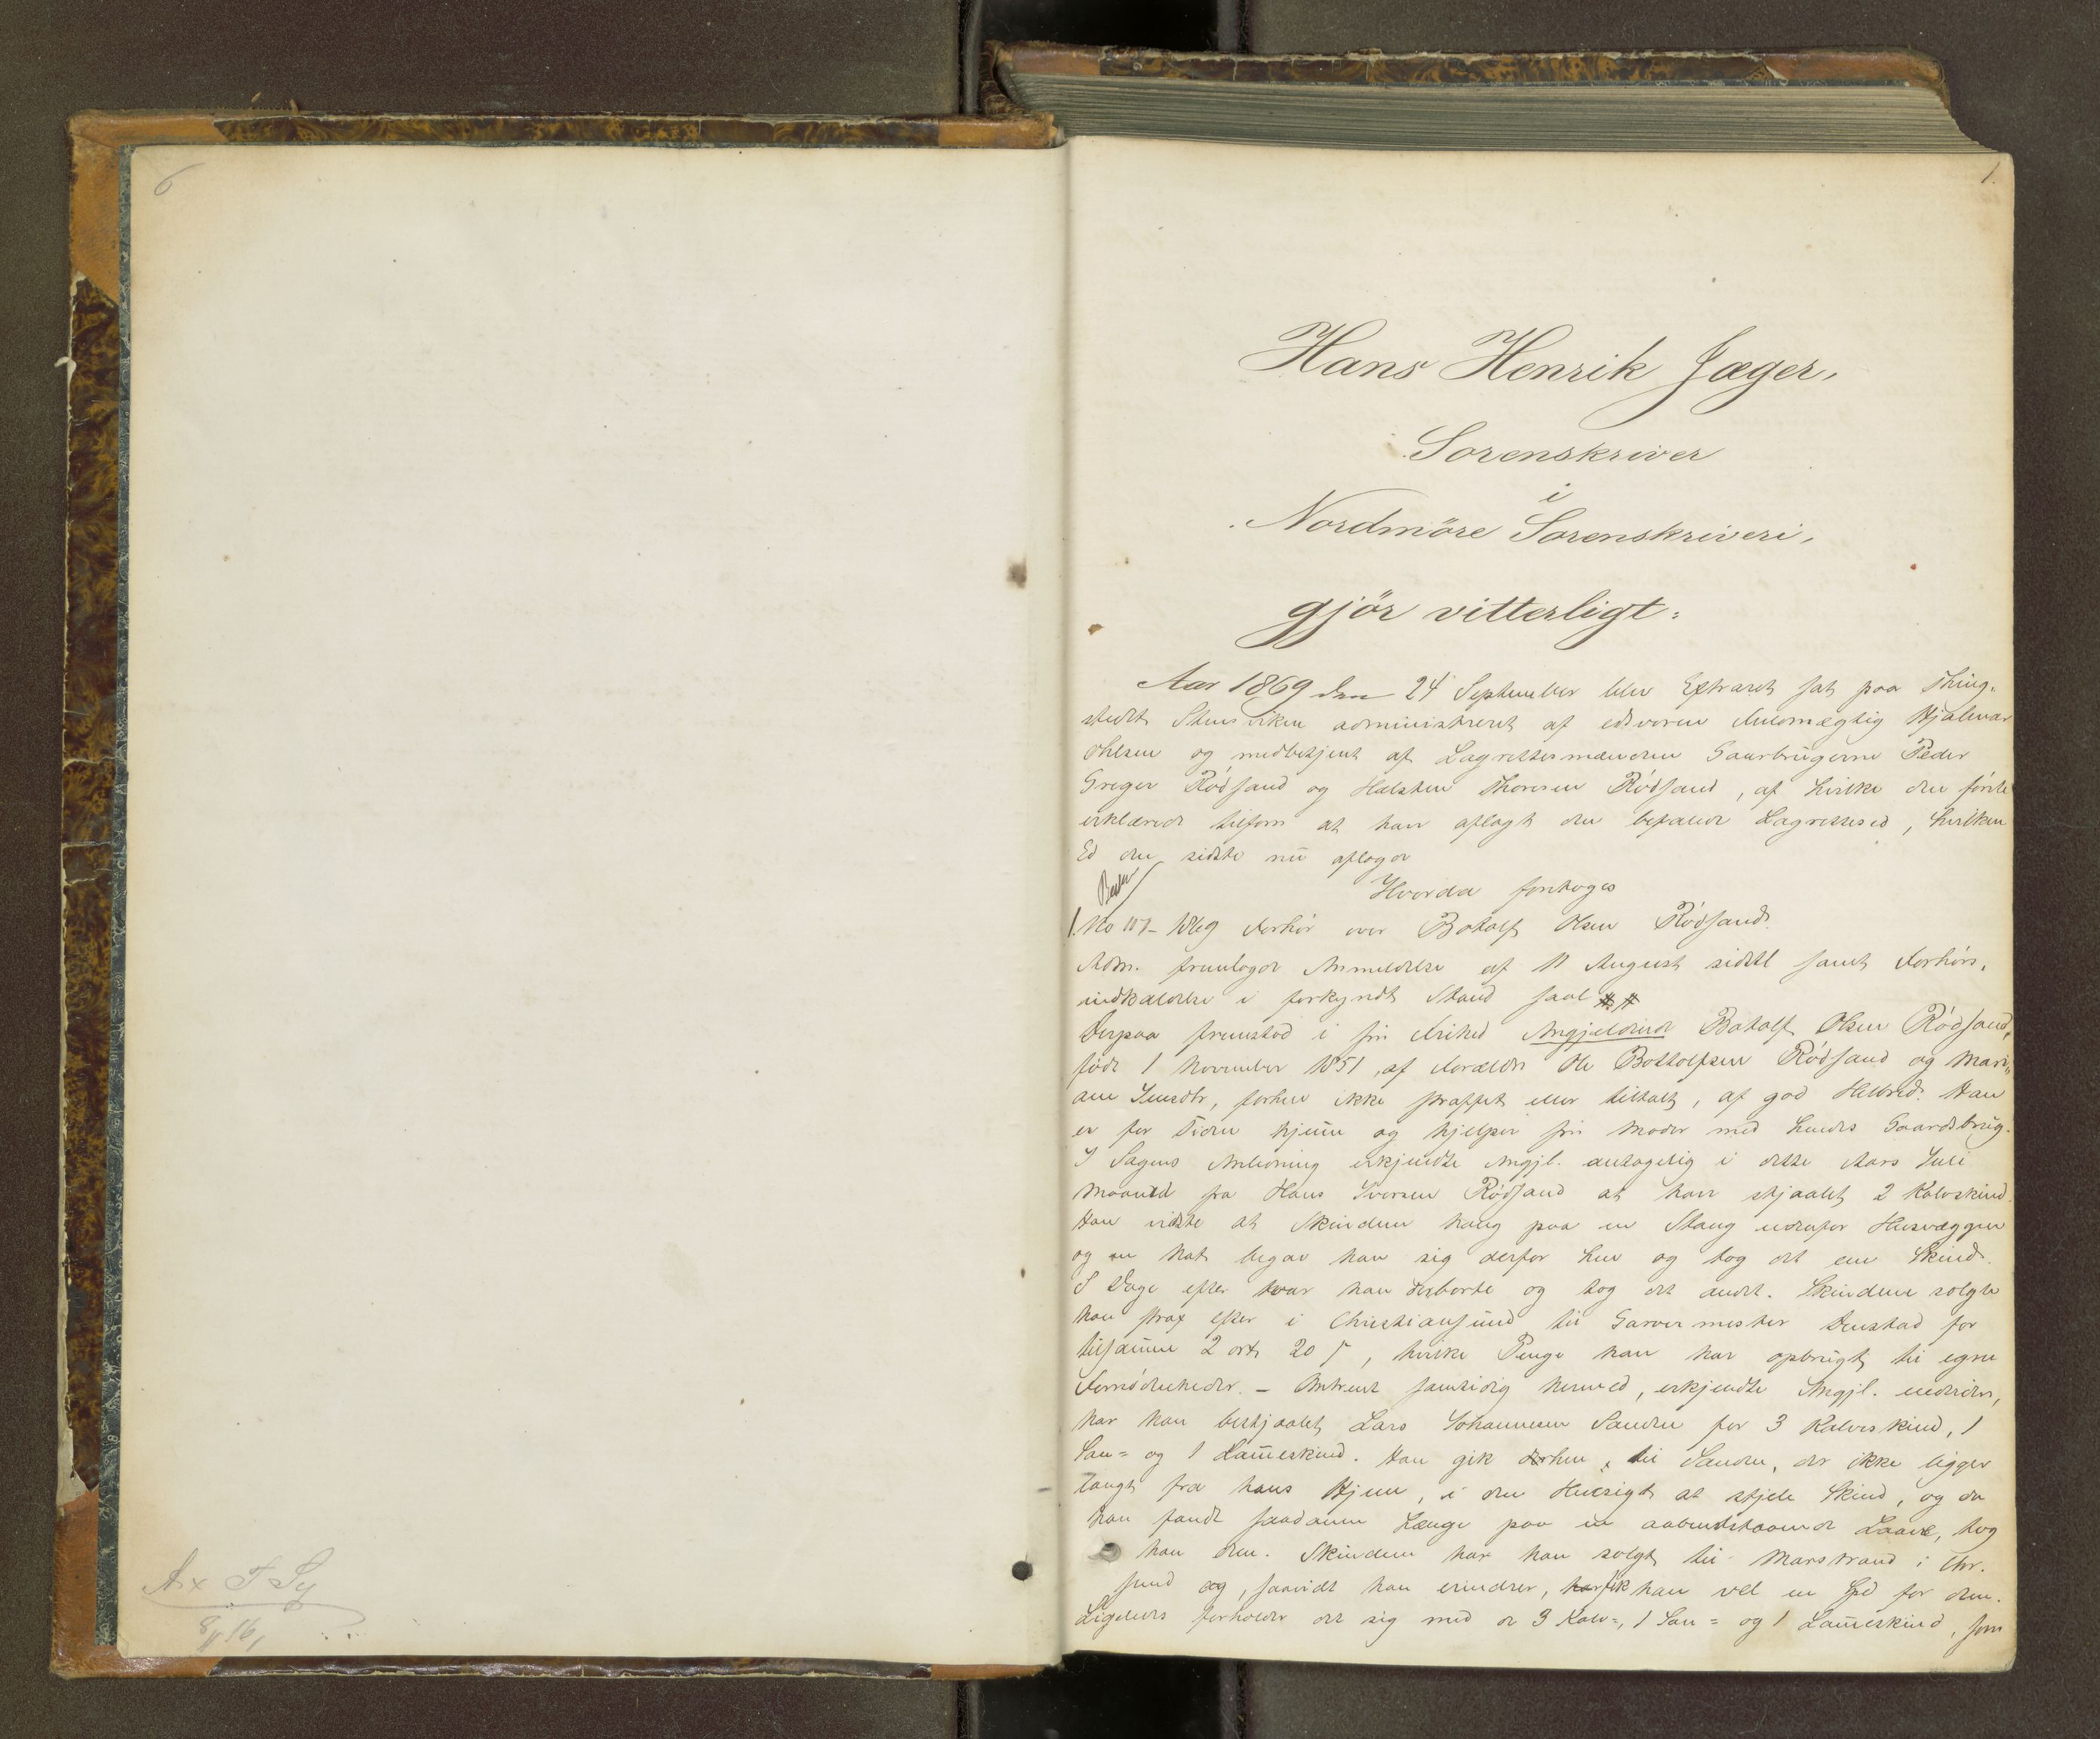 6
1.
Hans Henrik Jæger,
Sorenskriver
i
Nordmöre Sorenskriveri,
gjör vitterligt:
Aar 1869 den 24 September blev Extraret sat paa Thing-
stedet Stensviken administreret af edsvoren Fuldmægtig Hjalmar
Ohlsen og medbetjent af Lagrettesmændene Gaardbrugerne Peder
Greger Rödsand og Halsten Thoresen Rödsand, af hvilke den förste
erklærede tilforn at have aflagt den befalede Lagrettesed, hvilken
Ed den sidste nu aflagde
Hvorda foretoges
1. No 107-1869 Forhör over Botolf Olsen Rödsand.
Adm. fremlagde Anmeldelse af 11 August sidstl samt Forhörs-
indkaldelse i forkyndt Stand saal
Derpaa fremstod i fri Frihed Angjældende Botolf Olsen Rödsand,
född 1 November 1851, af Forældre Ole Bottolfsen Rödsand og Mari-
ane Jensdtr, forhen ikke straffet eller tiltalt, af god Helbred. Han
er for Tiden hjemme og hjelper sin Moder med hendes Gaardsbrug.
I Sagens Anledning erkjendte Angjl. antagelig i dette Aars Juli
Maaned fra Hans Iversen Rödsand at have stjaalet 2 Kalveskind.
Han vidste at Skindene hang paa en Stang udenfor Husvæggen
og en Nat begav han sig derfor hen og tog det ene Skind.
8 Dage efter var han derborte og tog det andet. Skindene solgte
han strax efter i Christiansund til Garvermester Denstad for
tilsamme 2 ort 20 s, hvilke Penge han har opbrugt til egne
Fornödenheder. - Omtrent samtidig hermed, erkjendte Angjl. endvidere,
har han bestjaalet Lars Johannesen Sanden for 3 Kalveskind, 1
Sau= og 1 Lammeskind. Han gik derhen, til Sanden, der ikke ligger
langt fra hans Hjem, i den Hensigt at stjele Skind, og da
han fandt saadanne hænge paa en aabenstaaende Laave, tog
han dem. Skindene har han solgt til Marstrand i Chr.
sund og, saavidt han erindrer, har fik han vel en Spd for dem.
Ligeledes forholder det sig med de 3 Kalv=, 1 Sau= og 1 Lammeskind, som